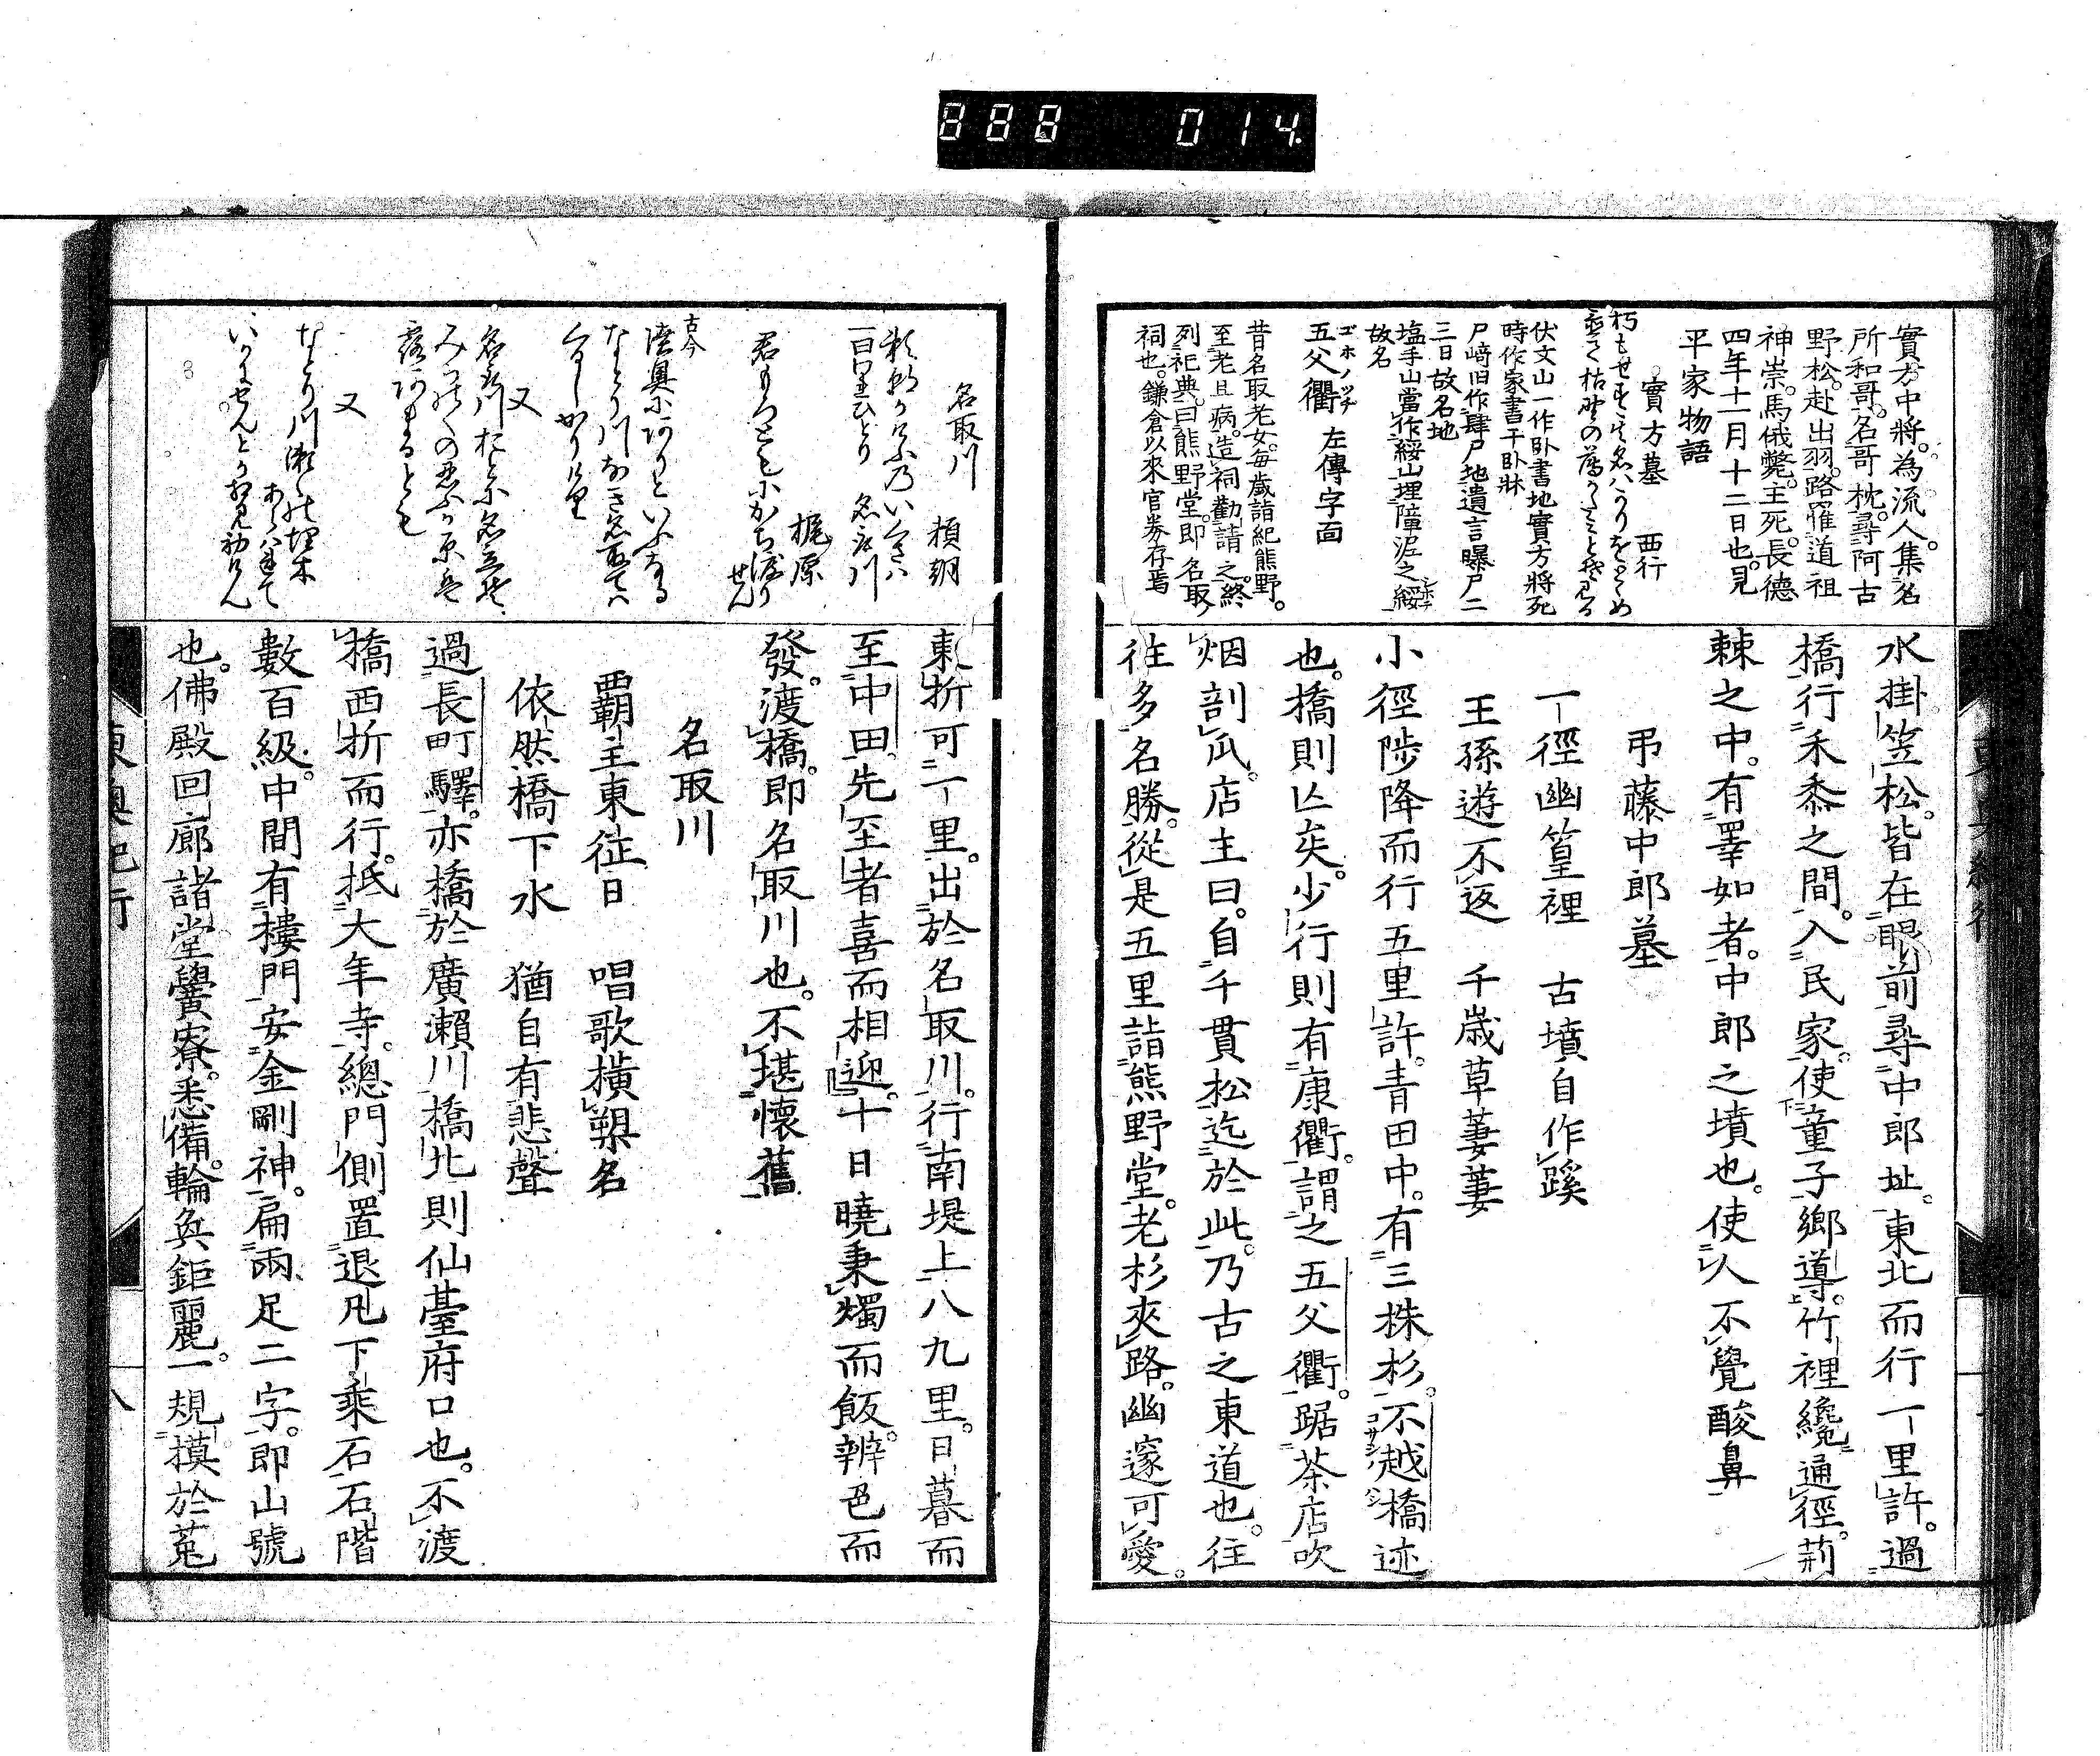 888 014
實方中將。為流人。集名
所和哥。名哥枕。尋阿古
野松。赴出羽。路罹道祖
神崇。馬俄斃。主死。長德
四年十一月十二日也。見
平家物語
實方墓 西行
朽もせぬ其名はかりをとゝめ
置て枯野の薄かたみとそ見る
伏文山一作卧書地實方將死
時作家書于卧牀
尸﨑旧作肆尸地遺言曝尸二
三日故名地
塩手山當作綏山埋障泥之綏
故名
五父衢 左傳字面
ゴホノツヂ
昔名取老女。毎歳詣紀熊野。
至老且病。造祠勸請之。終
列祀典。曰熊野堂。即名取
祠也。鎌倉以來官券存焉
水掛笠松。皆在眼前。尋中郎址。東北而行一里許。過
橋行禾黍之間。入民家。使童子鄉導。竹裡纔通徑。荊
棘之中。有睪如者。中郎之墳也。使人不覺酸鼻
弔藤中郎墓
一徑幽篁裡 古墳自作蹊
王孫遊不返 千歳草萋萋
小徑陟降而行五里許。青田中。有三株杉。不越橋迹
也。橋則亾矣。少行則有康衢。謂之五父衢。踞茶店吹
烟剖瓜。店主曰。自千貫松迄於此。乃古之東道也。往
往多名勝。從是五里詣熊野堂。老杉夾路。幽邃可愛。
東奥紀行
名取川 頼朝
梶原
君もろともにかち渡り
せん
古今
陸奥にありといふなる
なとり川なき名取ては
くるしかりけり
又
名取川
又
なとり川瀬々の埋木
あらはれて
いかにせんとかあひ見初けん
東折可一里。出於名取川。行南堤上八九里。日暮而
至中田。先至者喜而相迎。十日曉秉燭而飯。辨色而
發。渡橋。即名取川也。不堪懷舊
名取川
覇主東征日 唱歌橫槊名
依然橋下水 猶自有悲聲
過長町驛。亦橋於廣瀨川。橋北則仙臺府口也。不渡
橋西折而行。抵大年寺。總門側置退凡下乘石。石階
數百級。中間有樓門。安金剛神。扁兩足二字。即山號
也。佛殿回廊諸堂黌寮。悉備輪奐鉅麗。一規摸於菟
東奥紀行
八